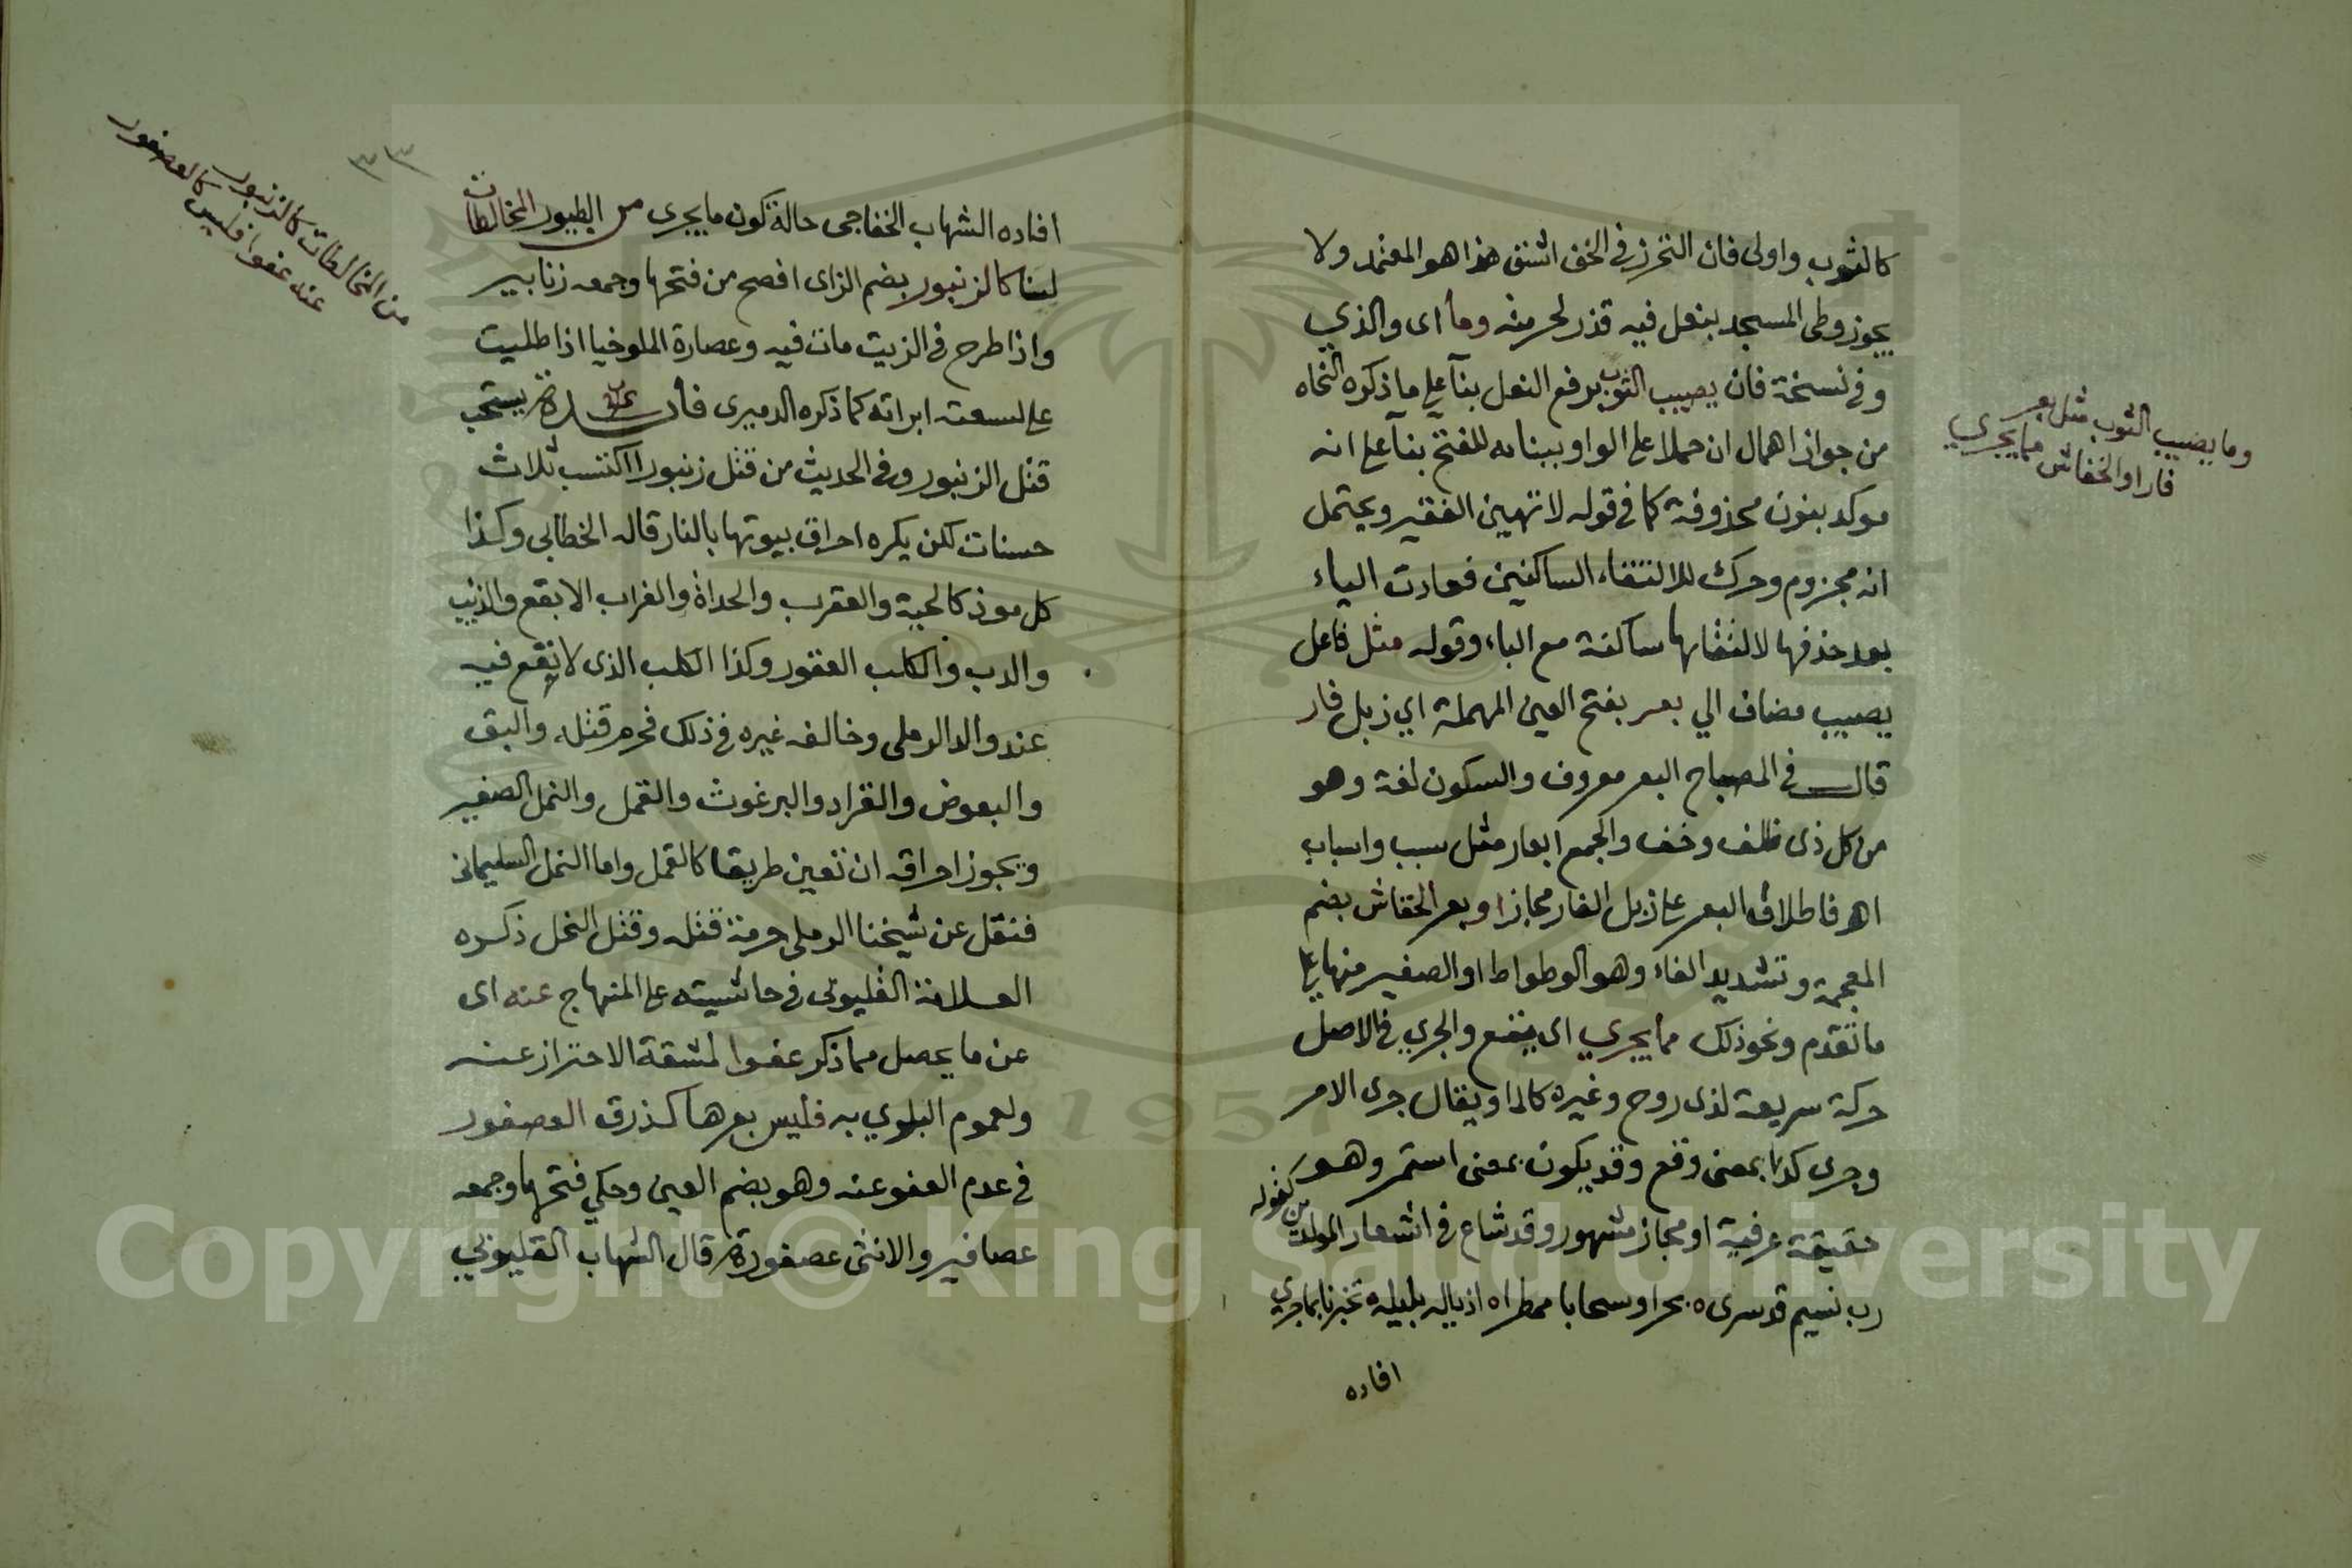 كالثوب واولى فان التحرز فى الخف اشق هذا هو المعتمد ولا
يجوز وطى المسجد بنعل فيه قذر لحرمته وما اى والذي
وفى نسخة فان يصيب الثوب برفع الفعل بناء على ما ذكره النحاه
من جواز اهمال ان حملا على الواو ببناءه للفتح بناء على انه
موكد بنون محذوفة كما فى قوله لا تهين الفقير ويحتمل
انه مجزوم وحرك لالتقاء الساكنين فعادت الياء
بعد حذفها لالتقائها ساكنة مع الباء وقوله مثل فاعل
يصيب مضاف الي بعر بفتح العين المهملة اي زبل فار
قال فى المصباح البعر معروف والسكون لغة وهو
من كل ذى ظلف وخف والجمع ابعار مثل سبب واسباب
اهـ فاطلاق البعر على زبل الفار مجاز او بعر الخفاش بضم
المعجمة وتشديد الفاء وهو الوطواط او الصغير منها على
ما تقدم ونحو ذلك مما يجري اى يقع والجري فى الاصل
حركة سريعة لذى روح وغيره كالماء ويقال جرى الامر
وجرى كذا بمعنى وقع وقد يكون بمعنى استمر وهو
حقيقة عرفية او مجاز مشهور وقد شاع فى اشعار المولدين كقوله
رب نسيم قد سرى ٥ بحرا وسحابا ممطرا ٥ اذياله بليله ٥ تخبرنا بما جرى
افاده
وما يصيب الثوب مثل بعر
فار او الخفاش مما يجري
٣٣
افاده الشهاب الخفاجى حالة كون ما يجرى من الطيور المخالطات
لنا كالزنبور بضم الزاى افصح من فتحها وجمعه زنابير
واذا طرح فى الزيت مات فيه وعصارة الملوخيا اذا طليت
على لسعته ابراته كما ذكره الدميرى فائدة يستحب
قتل الزنبور وفى الحديث من قتل زنبورا اكتسب ثلاث
حسنات لكن يكره احراق بيوتها بالنار قاله الخطابي وكذا
كل موذ كالحية والعقرب والحداة والغراب الابقع والذيب
والدب والكلب العقور وكذا الكلب الذى لا نفع فيه
عند والد الرملى وخالفه غيره فى ذلك فحرم قتله والبق
والبعوض والقراد والبرغوث والقمل والنمل الصغير
ويجوز احراقه ان تعين طريقا كالقمل واما النمل السليمانى
فنقل عن شيخنا الرملى حرمة قتله وقتل النحل ذكره
العلامة القليوبى فى حاشيته على المنهاج عنه اى
عن ما يحصل مما ذكر عفوا لمشقة الاحتراز عنه
ولعموم البلوي به فليس بعرها كذرق العصفور
فى عدم العفو عنه وهو بضم العين وحكي فتحها وجمعه
عصافير والانثى عصفورة قال الشهاب القليوبي
من المخالطات كالزنبور
عنه عفوا فليس كالعصفور
1957
Copyright © King Saud University